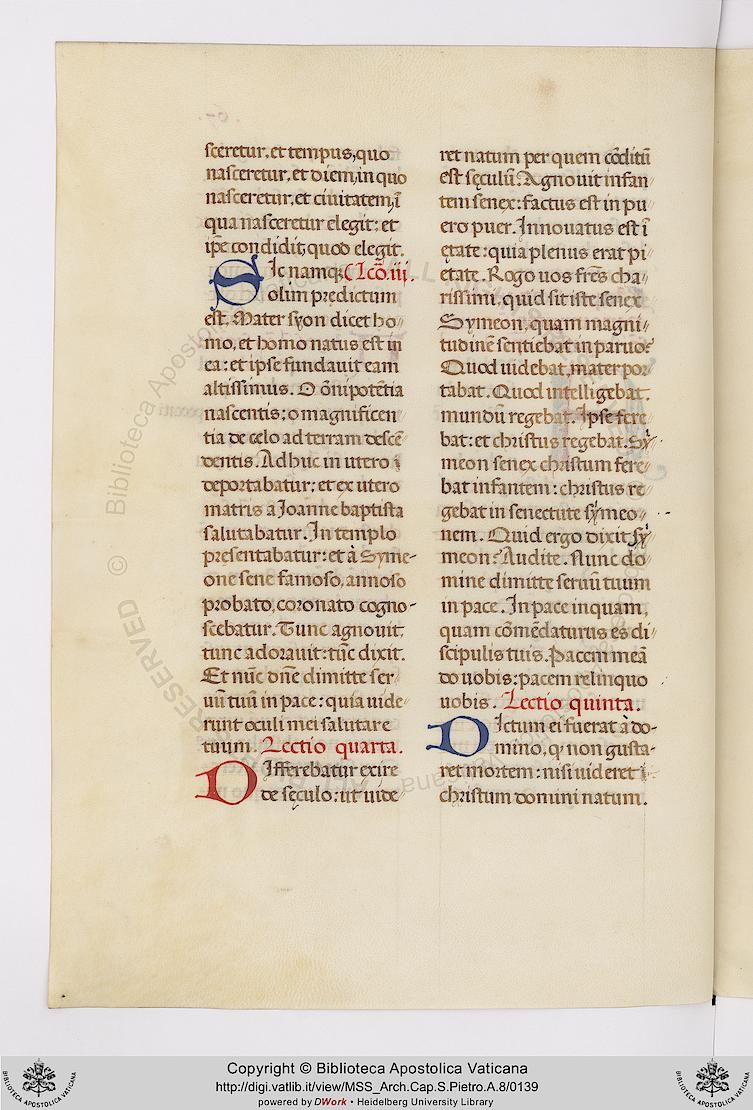 sceretur, et tempus, quo
nasceretur, et diem, in quo
nasceretur, et ciuitatem, ī
qua nasceretur elegit: et
ip̄e condidit, quod elegit.
Sic namq; Lcō. iij.
olim predictum
est. Mater syon dicet ho⸗
mo, et homo natus est in
ea: et ipse fundauit eam
altissimus. O ōnipotētia
nascentis: o magnificen
tia de celo ad terram descē
dentis. Adhuc in utero
deportabatur: et ex utero
matris a Joanne baptista
salutabatur. In templo
presentabatur: et à Syme-
one sene famoso, annoso
probato, coronato cogno-
scebatur. Tunc agnouit:
tunc adorauit: tūc dixit.
Et nūc dn̄e dimitte ser
uū tuū in pace: quia uide
runt oculi mei salutare
tuum. Lectio quarta.
Differebatur exire
de sęculo: ut uide
ret natum per quem cōditū
est sęculū. Agnouit infan
tem senex: factus est in pu
ero puer. Innouatus est ī
ętate: quia plenus erat pi
etate. Rogo uos fr̄es cha
rissimi, quid sit iste senex
Symeon, quam magni
tudinē sentiebat in paruo?
Quod uidebat, mater por
tabat. Quod intelligebat.
mundū regebat. Ipse fere
bat: et christus regebat. Sy
meon senex christum fere
bat infantem: christus re
gebat in senectute symeo
nem. Quid ergo dixit sy
meon? Audite. Nunc do
mine dimitte seruū tuum
in pace. In pace inquam,
quam cōmēdaturus es di
scipulis tuis. Pacem meā
do uobis: pacem relinquo
uobis. Lectio quinta.
Dictum ei fuerat à do-
mino, q non gusta-
ret mortem: nisi uideret
christum domini natum.
© Biblioteca Apostolica Vaticana
Copyright © Biblioteca Apostolica Vaticana
http://digi.vatlib.it/view/MSS_Arch.Cap.S.Pietro.A.8/0139
powered by DWork • Heidelberg University Library
BIBLIOTECA APOSTOLICA VATICANA
BIBLIOTECA APOSTOLICA VATICANA